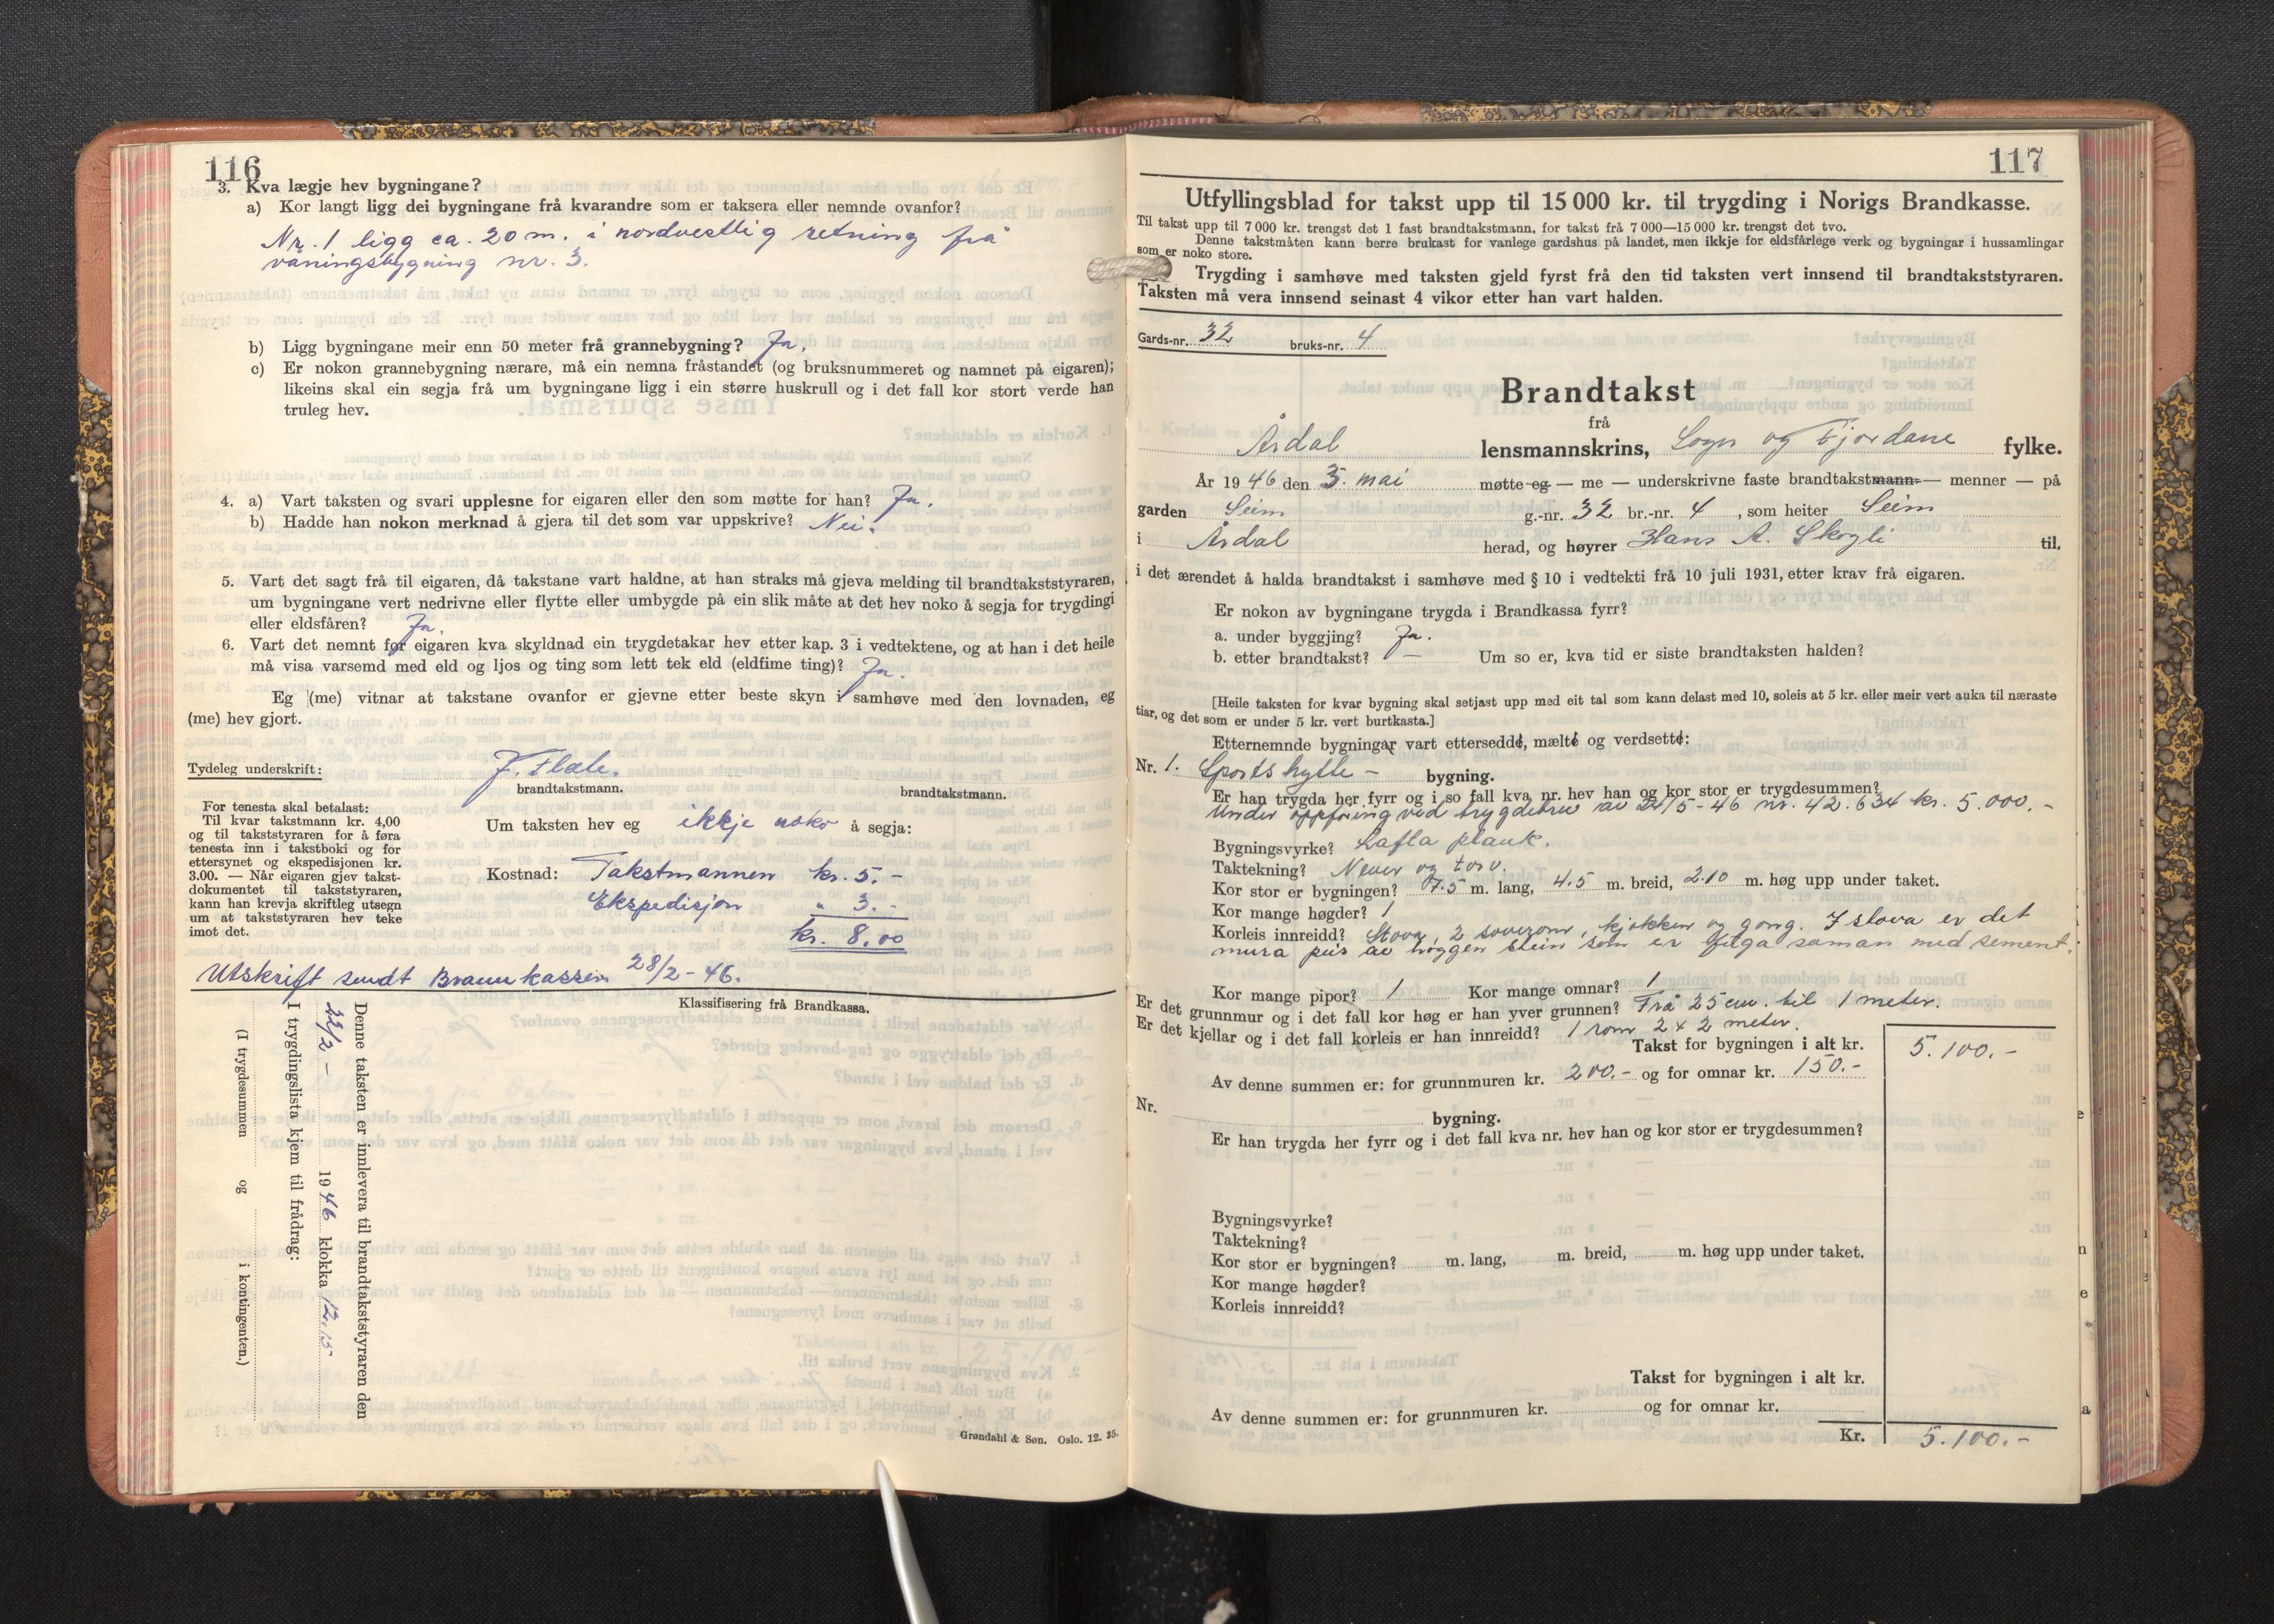 116
3. Kva lægje hev bygningane?
a) Kor langt ligg dei bygningane frå kvarandre som er taksera eller nemnde ovanfor?
Nr. 1 ligg ca. 20 m. i nordvestlig retning frå
våningsbygning nr. 3.
b) Ligg bygningane meir enn 50 meter frå grannebygning? Ja.
c) Er nokon grannebygning nærare, må ein nemna fråstandet (og bruksnummeret og namnet på eigaren);
likeins skal ein segja frå um bygningane ligg i ein større huskrull og i det fall kor stort verde han
truleg hev.
4. a) Vart taksten og svari upplesne for eigaren eller den som møtte for han? Ja.
b) Hadde han nokon merknad å gjera til det som var uppskrive? Nei.
5. Vart det sagt frå til eigaren, då takstane vart haldne, at han straks må gjeva melding til brandtakststyraren,
um bygningane vert nedrivne eller flytte eller umbygde på ein slik måte at det hev noko å segja for trygdingi
eller eldsfåren? Ja.
6. Vart det nemnt for eigaren kva skyldnad ein trygdetakar hev etter kap. 3 i vedtektene, og at han i det heile
må visa varsemd med eld og ljos og ting som lett tek eld (eldfime ting)? Ja.
Eg (me) vitnar at takstane ovanfor er gjevne etter beste skyn i samhøve med den lovnaden, eg
(me) hev gjort.
Tydeleg underskrift: J. Flate.
brandtakstmann. brandtakstmann.
For tenesta skal betalast:
Til kvar takstmann kr. 4,00
og til takststyraren for å føra
tenesta inn i takstboki og for
ettersynet og ekspedisjonen kr.
3.00. — Når eigaren gjev takst-
dokumentet til takststyraren,
kann han krevja skriftleg utsegn
um at takststyraren hev teke
imot det.
Um taksten hev eg ikkje noko å segja:
Kostnad: Takstmannen kr. 5.-
Ekspedisjon " 3.-
kr. 8.00
Utskrift sendt Brannkassen 28/2-46.
Klassifisering frå Brandkassa.
Denne taksten er innlevera til brandtakststyraren den
22/2 - 1946 klokka 12.15
I trygdingslista kjem til frådrag:
(I trygdesummen og i kontingenten.)
Grøndahl & Søn. Oslo. 12. 35.
117
Utfyllingsblad for takst upp til 15 000 kr. til trygding i Norigs Brandkasse.
Til takst upp til 7 000 kr. trengst det 1 fast brandtakstmann, for takst frå 7 000—15 000 kr. trengst det tvo.
Denne takstmåten kann berre brukast for vanlege gardshus på landet, men ikkje for eldsfårlege verk og bygningar i hussamlingar
som er noko store.
Trygding i samhøve med taksten gjeld fyrst frå den tid taksten vert innsend til brandtakststyraren.
Taksten må vera innsend seinast 4 vikor etter han vart halden.
Gards-nr. 32 bruks-nr. 4
Brandtakst
frå
Årdal lensmannskrins, Sogn og Fjordane fylke.
År 1946 den 3. mai møtte eg — me — underskrivne faste brandtakstmann — menner — på
garden Seim g.-nr. 32 br.-nr. 4, som heiter Seim
i Årdal herad, og høyrer Hans A. Skogli til,
i det ærendet å halda brandtakst i samhøve med § 10 i vedtekti frå 10 juli 1931, etter krav frå eigaren.
Er nokon av bygningane trygda i Brandkassa fyrr?
a. under byggjing? Ja.
b. etter brandtakst? — Um so er, kva tid er siste brandtaksten halden?
[Heile taksten for kvar bygning skal setjast upp med eit tal som kann delast med 10, soleis at 5 kr. eller meir vert auka til næraste
tiar, og det som er under 5 kr. vert burtkasta.]
Etternemnde bygningar vart ettersedde, mælte og verdsette:
Nr. 1. Sportshytte - bygning.
Er han trygda her fyrr og i so fall kva nr. hev han og kor stor er trygdesummen?
Under oppføring ved trygdebrev av 24/5-46 nr. 42.634 kr. 5.000.-
Bygningsvyrke? Lafta plank.
Taktekning? Never og torv.
Kor stor er bygningen? 7.5 m. lang, 4.5 m. breid, 2.10 m. høg upp under taket.
Kor mange høgder? 1
Korleis innreidd? Stova, 2 soverom, kjøkken og gong. I stova er det
mura peis av hoggen stein som er fuga saman med sement.
Kor mange pipor? 1 Kor mange omnar? 1
Er det grunnmur og i det fall kor høg er han yver grunnen? Frå 25 cm. til 1 meter.
Er det kjellar og i det fall korleis er han innreidd? 1 rom 2 x 2 meter.
Takst for bygningen i alt kr. 5.100.-
Av denne summen er: for grunnmuren kr. 200.- og for omnar kr. 150.-
Nr. bygning.
Er han trygda her fyrr og i det fall kva nr. hev han og kor stor er trygdesummen?
Bygningsvyrke?
Taktekning?
Kor stor er bygningen? m. lang, m. breid, m. høg upp under taket.
Kor mange høgder?
Korleis innreidd?
Takst for bygningen i alt kr.
Av denne summen er: for grunnmuren kr. og for omnar kr.
Kr. 5.100.-